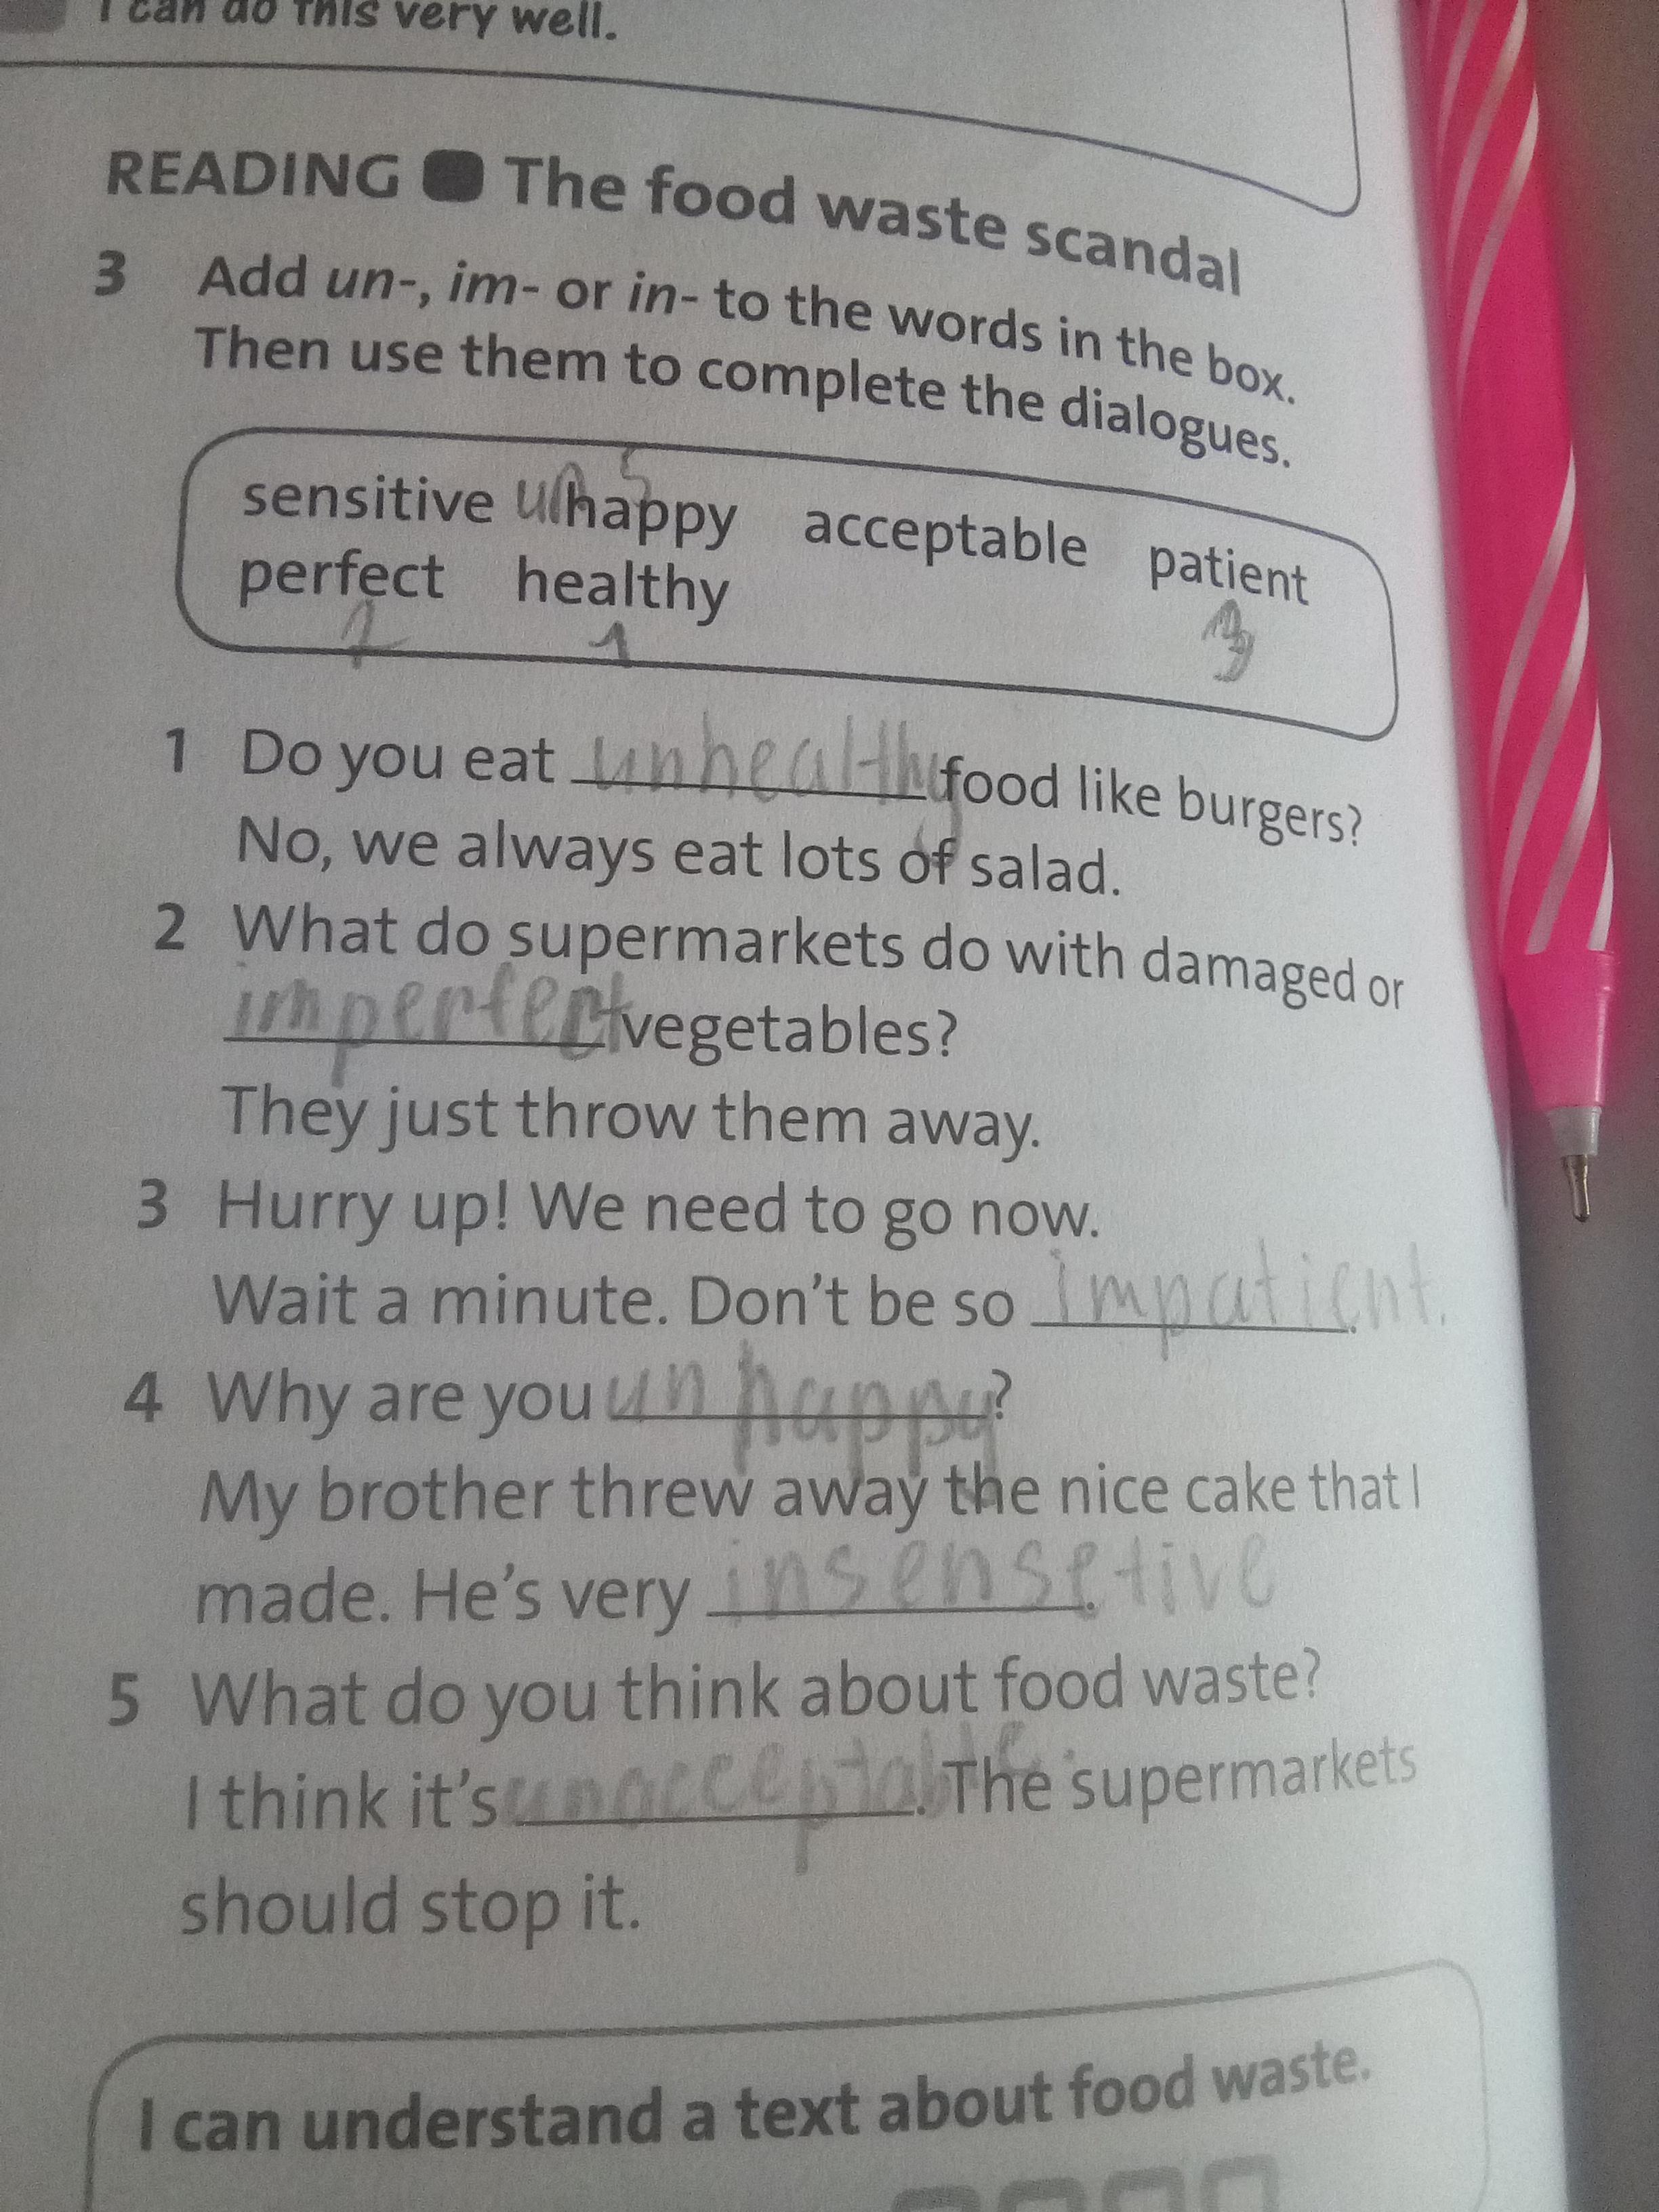 I can do this very well.
READING The food waste scandal
3 Add un-, im- or in- to the words in the box.
Then use them to complete the dialogues.
5
sensitive un happy acceptable patient
perfect healthy
2 1 3
1 Do you eat unhealthy food like burgers?
No, we always eat lots of salad.
2 What do supermarkets do with damaged or
imperfect vegetables?
They just throw them away.
3 Hurry up! We need to go now.
Wait a minute. Don't be so impatient.
4 Why are you unhappy?
My brother threw away the nice cake that I
made. He's very insensetive.
5 What do you think about food waste?
I think it's unacceptable. The supermarkets
should stop it.
I can understand a text about food waste.